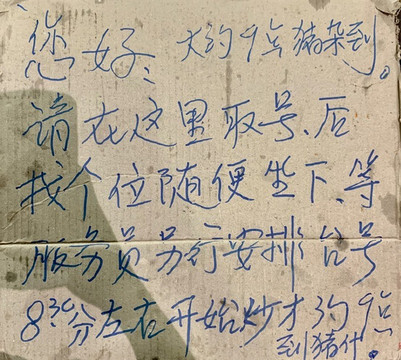 您好: 大约9点猪杂到。
请在这里取号、后
找个位随便坐下、等
服务员另行安排台号
8:30分左右开始炒才约9点
到猪什。